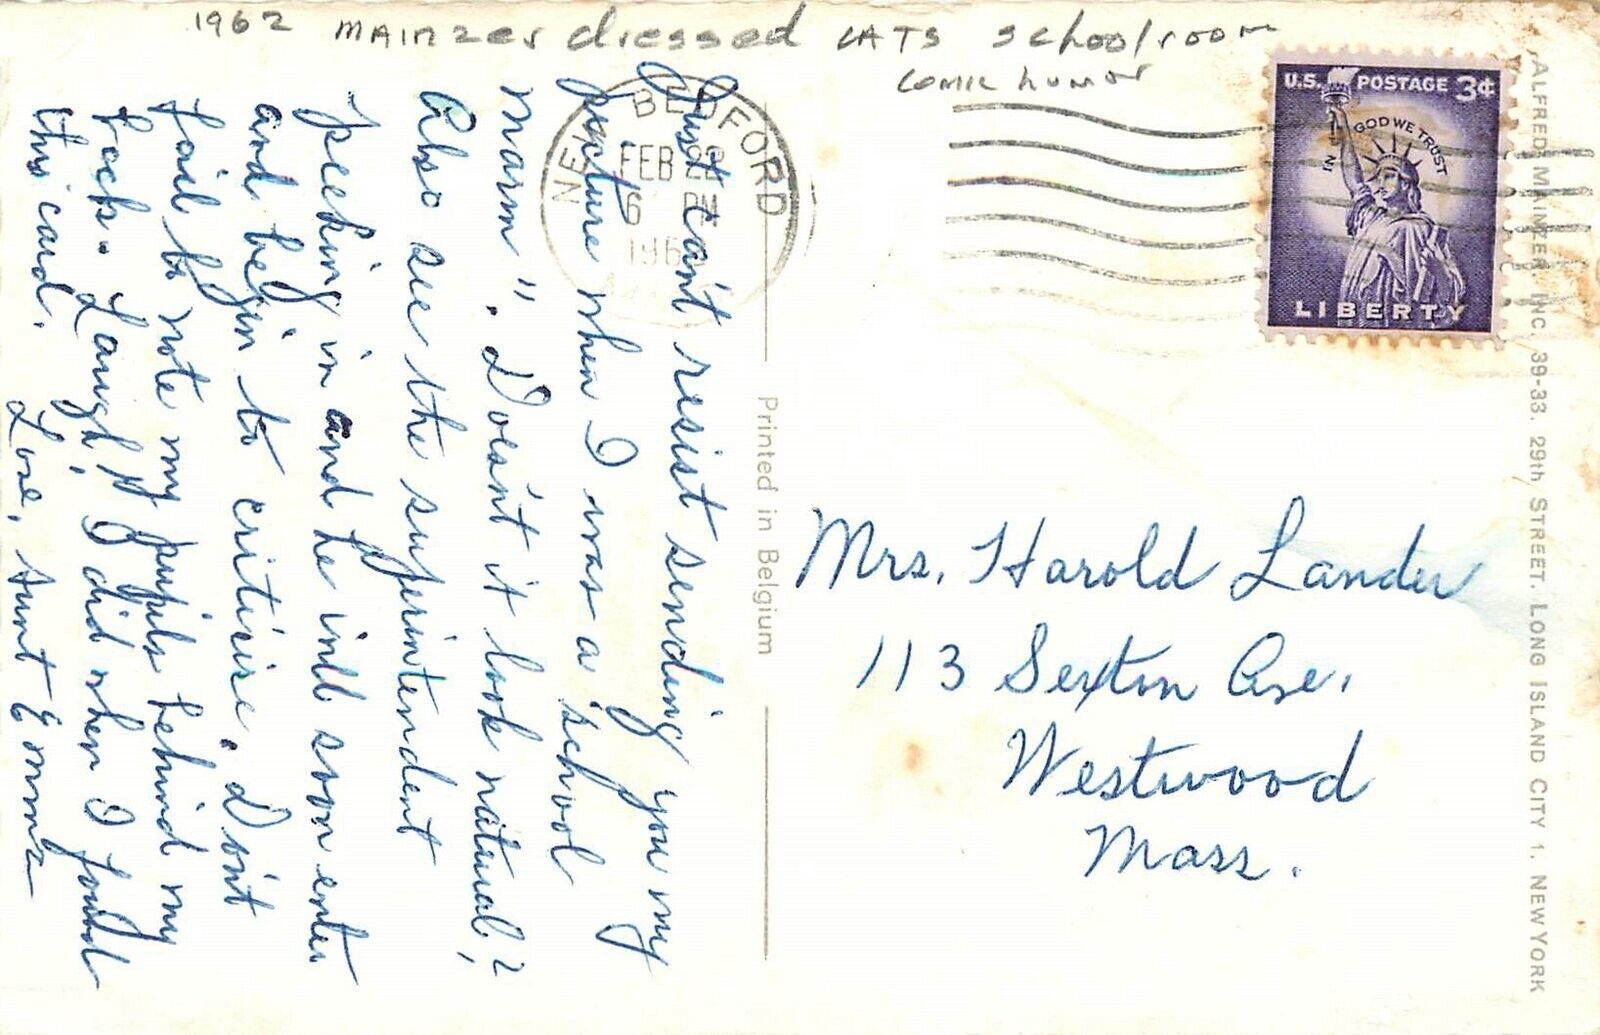 1962 MAINZER dressed CATS schoolroom
comic humor
NEW BEDFORD
FEB 22
6 PM
196
MASS
U.S. POSTAGE 3¢
IN GOD WE TRUST
LIBERTY
Just can't resist sending you my
picture when I was a "school
marm". Doesn't it look natural?
Also see the superintendent
peeking in and he will soon enter
and begin to criticise. Don't
fail to note my pupils behind my
back. Laugh! I did when I found
this card.
Love, Aunt Emma
Printed in Belgium
Mrs. Harold Lander
113 Sexton Ave.
Westwood
Mass.
ALFRED MAINZER, INC. 39-33. 29th STREET. LONG ISLAND CITY 1. NEW YORK